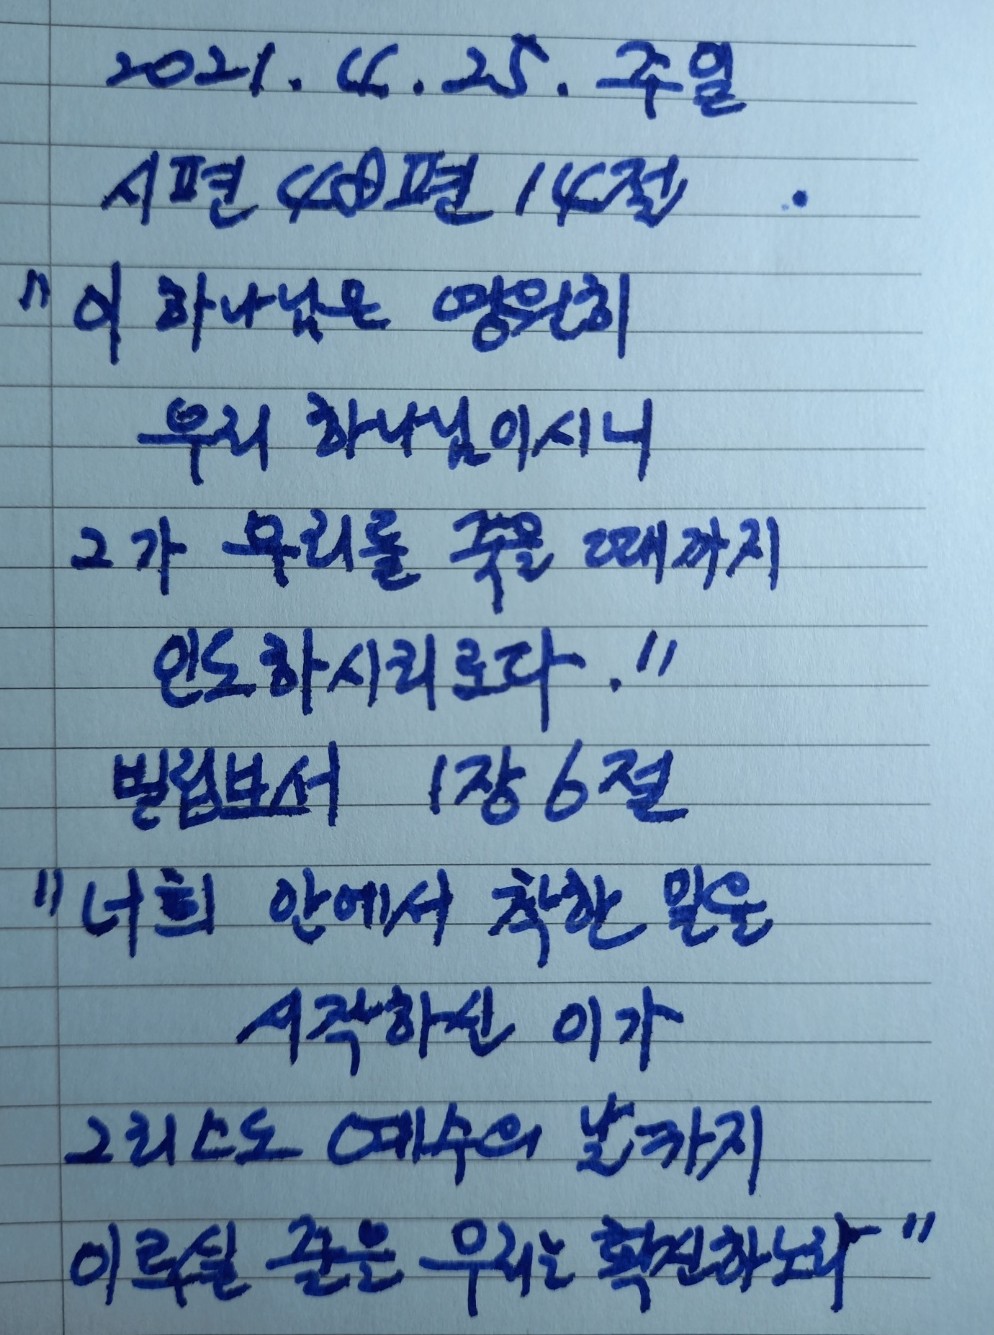 2021. 4. 25. 주일
시편 48편 14절
"이 하나님은 영원히
우리 하나님이시니
그가 우리를 죽을 때까지
인도하시리로다."
빌립보서 1장 6절
"너희 안에서 착한 일을
시작하신 이가
그리스도 예수의 날까지
이루실 줄을 우리는 확신하노라"